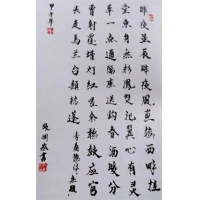 昨夜星辰昨夜風畫樓西畔桂
堂東身無彩鳳雙飛翼心有靈
犀一點通隔座送鉤春酒暖分
曹射覆蠟灯紅嗟余聽鼓應官
去走馬蘭台類轉蓬 李商隱詩無題
甲午年